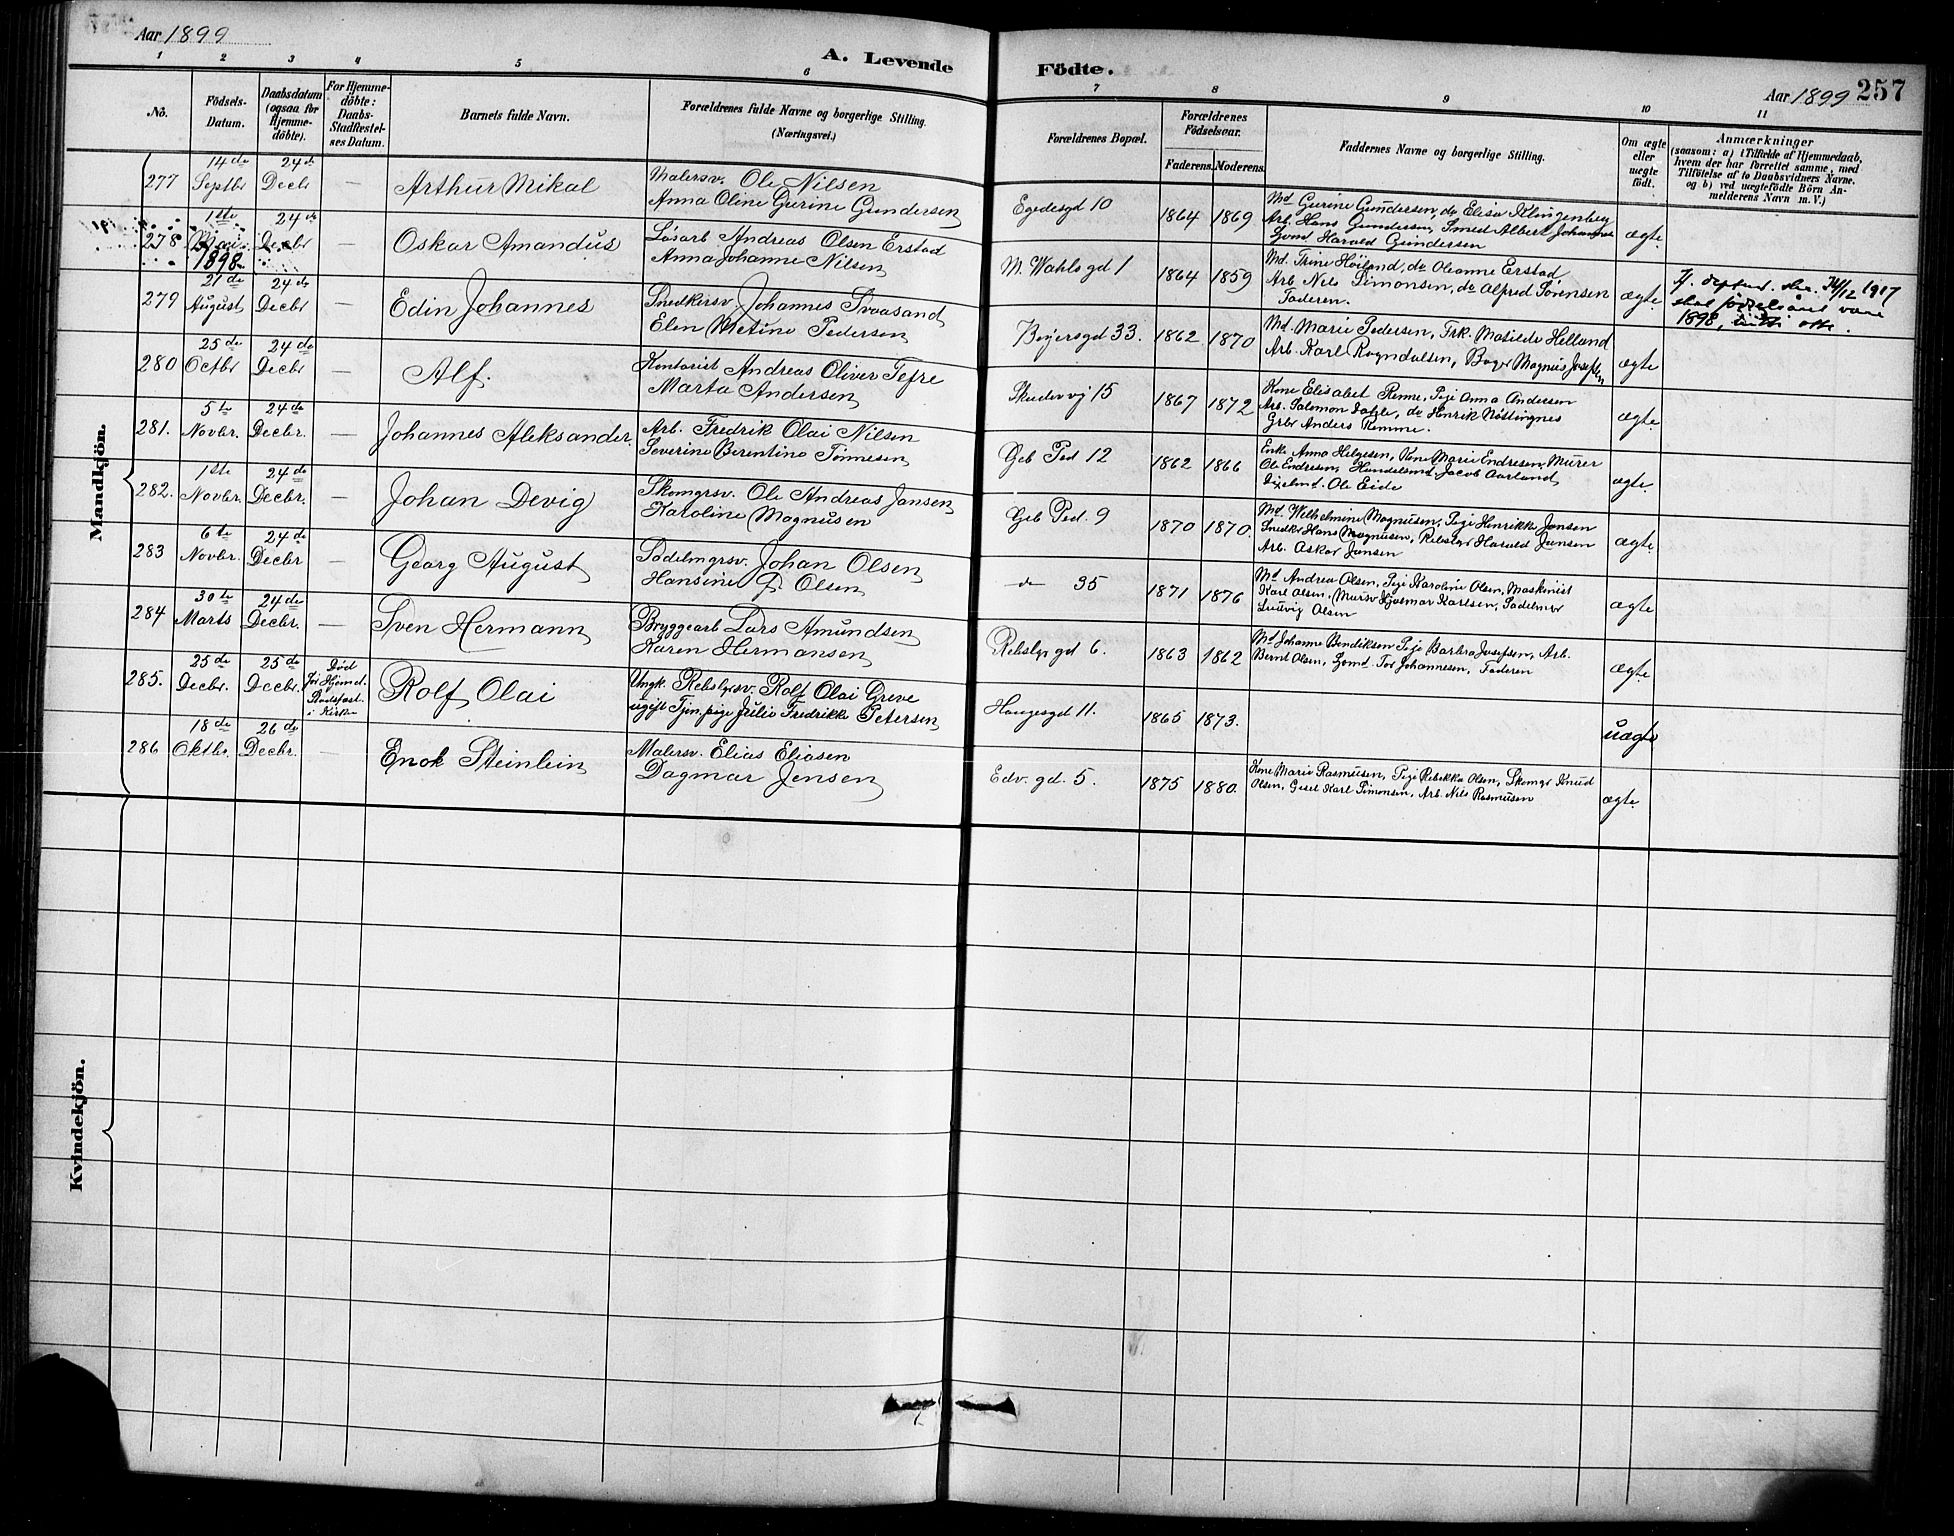 Aar 1899
A. Levende Födte.
Aar 1899 257
1 2 3 4 5 6 7 8 9 10 11
No.
Födsels-
Datum.
Daabsdatum
(ogsaa for
Hjemme-
döbte).
For Hjemme-
döbte:
Daabs-
Stadfæstel-
ses Datum.
Barnets fulde Navn.
Forældrenes fulde Navne og borgerlige Stilling.
(Næringsvei.)
Forældrenes Bopæl.
Forældrenes
Födselsaar.
Faderens. Moderens.
Faddernes Navne og borgerlige Stilling.
Om ægte
eller
uægte
födt.
Anmærkninger
(saasom: a) i Tilfælde af Hjemmedaab,
hvem der har forrettet samme, med
Tilföielse af to Daabsvidners Navne,
og b) ved uægtefödte Börn An-
melderens Navn m. V.)
Mandkjön.
277 14de Septbr 24de Decbr — Arthur Mikal
Malersv. Ole Nilsen
Anna Oline Gurine Gundersen
Egedesgd 10 1864 1869
Md Gurine Gundersen, do Elisa Klingenberg
Arb. Hans Gundersen, Smed Albert Johannes
Gvmd Harald Gundersen
ægte
278 1ste Mai 1898 24de Decbr — Oskar Amandus
Løsarb Andreas Olsen Erstad
Anna Johanne Nilsen
M. Wahls gd 1 1864 1859
Md. Trine Höiland, do Oleanne Erstad
Arb. Nils Simonsen, do Alfred Sørensen
Faderen.
ægte
Jf. depted. skr. 14/12 1917
skal fødselsåret være
1898, otte.
279 21de August 24de Decbr — Edin Johannes
Snedkersv Johannes Svaasand
Elen Metine Pedersen
Beyersgd 33. 1862 1870
Md. Marie Pedersen, Frk. Matilde Helland
Arb. Karl Rogndalsen, Bager Magnus Josefsen
ægte
280 25de Octbr 24de Decbr — Alf.
Kontorist Andreas Oliver Tefre
Marta Andersen
Skudevig 15 1867 1872
Kone Elisabet Remme, Pige Anna Andersen
Arb. Salomon Dahle, do Henrik Nöttingnes
Grbr Anders Remme.
ægte
281. 5te Novbr. 24de Decbr. — Johannes Aleksander
Arb. Fredrik Olai Nilsen
Severine Berentine Tönnesen
Geb Ped 12 1862 1866
Enke Anna Helgesen, Kone Marie Endresen, Murer
Ole Endresen, Handelsmd. Jacob Aarland
Ole Eide
ægte.
282. 1ste Novbr. 24de Decbr. — Johan Devig
Skomgrsv. Ole Andreas Jansen
Katoline Magnusen
Geb Ped. 9 1870 1870.
Md. Wilhelmine Magnusen, Pige Henrikke Jansen
Snedkr Hans Magnusen, Rebslgr Harald Jansen
Arb. Oskar Jansen
ægte.
283 6te Novbr. 24de Decbr — Georg August
Sadelmgrsv. Johan Olsen
Hansine P. Olsen
do 35 1871 1876
Md Andrea Olsen, Pige Karoline Olsen, Maskinist
Karl Olsen, Mursv Hjalmar Karlsen, Sadelmgr
Ludvig Olsen
ægte.
284 30te Marts 24de Decbr. — Sven Hermann
Bryggearb Lars Amundsen
Karen Hermansen
Rebslgr gd 6. 1863 1862
Md Johanne Bendiksen Pige Barbra Josefsen, Arb.
Bernt Olsen, Gvmd. Tor Johannesen, Faderen
ægte.
285. 25de Decbr. 25de Decbr.
Död
før Hjemd.
Stadfæst.
i Kirke
Rolf Olai
Ungk. Rebslgrsv. Rolf Olai Greve
ugift Tjen. pige Julie Fredrikke Petersen
Haugesgd 11. 1865 1873.
uægte
286 18de Oktbr. 26de Decbr. — Enok Steinlein
Malersv. Elias Eliasen
Dagmar Jensen
Edv. gd. 5. 1875 1880.
Kone Marie Rasmusen, Pige Rebekka Olsen, Skomgr Knud
Olsen, Gesel Karl Simonsen, Arb. Nils Rasmusen
ægte.
Kvindekjön.